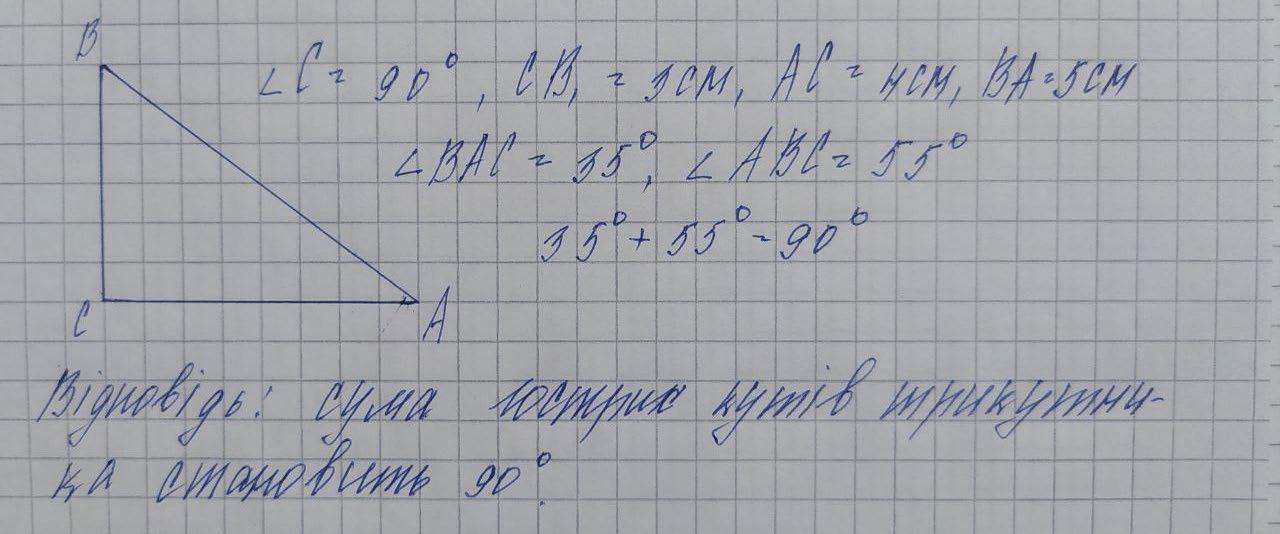 B
∠C = 90°, CB = 3см, AC = 4см, BA = 5см
∠BAC = 35°, ∠ABC = 55°
35° + 55° = 90°
C
A
Відповідь: сума гострих кутів трикутни-
ка становить 90°.